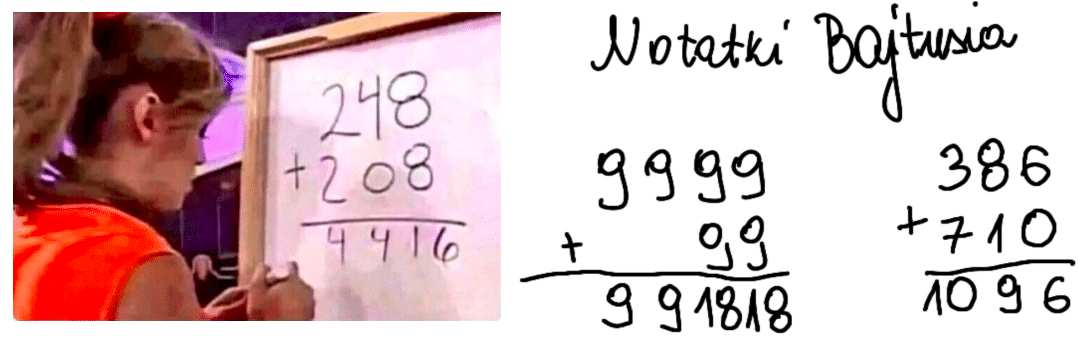 248
+208
4416
Notatki Bajtusia
9999
+ 99
991818
386
+710
1096